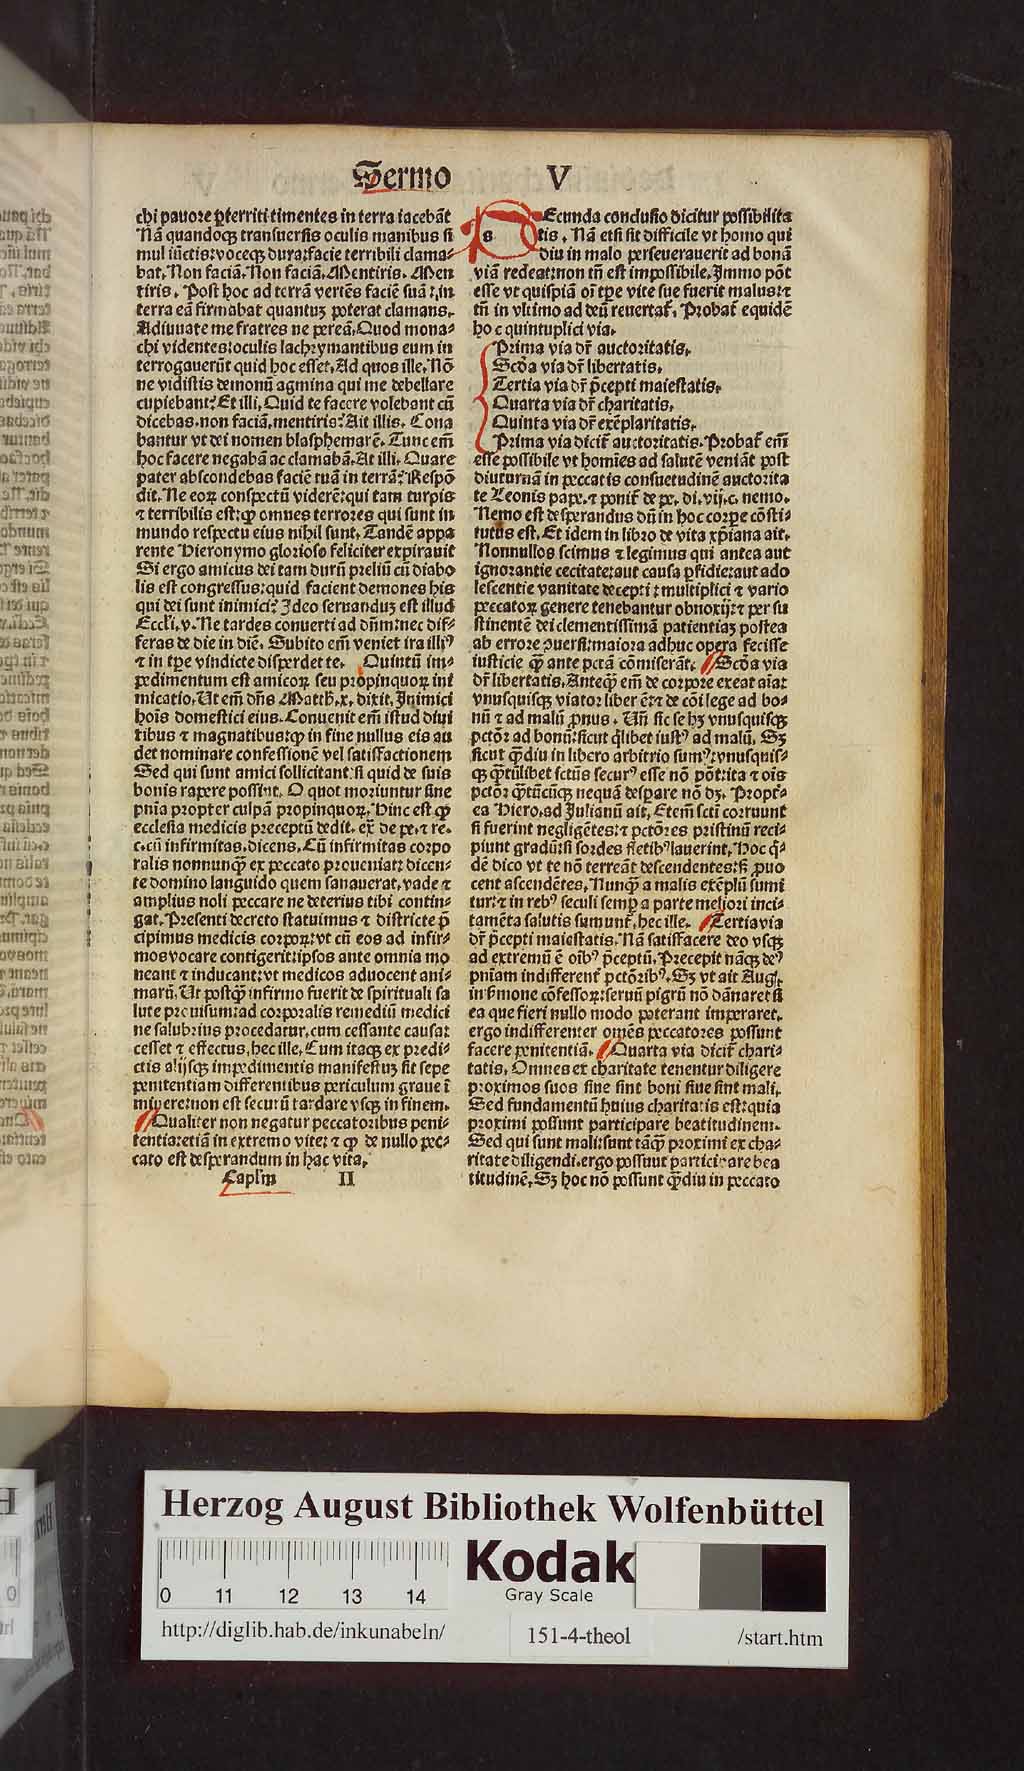 Sermo V
chi pauore ꝑterriti timentes in terra iacebāt
Nā quandoqꝫ transuersis oculis manibus si
mul iūctis: voceqꝫ dura: facie terribili clama⸗
bat. Non faciā. Non faciā. Mentiris. Men
tiris. Post hoc ad terrā vertēs faciē suā: in
terra eā firmabat quantuꝫ poterat clamans.
Adiuuate me fratres ne pereā. Quod mona⸗
chi videntes: oculis lachrymantibus eum in
terrogauerūt quid hoc esset. Ad quos ille. Nō
ne vidistis demonū agmina qui me debellare
cupiebant? Et illi. Quid te facere volebant cū
dicebas. non faciā. mentiris? Ait illis. Cona
bantur vt dei nomen blasphemarē. Tunc em̄
hoc facere negabā ac clamabā. At illi. Quare
pater abscondebas faciē tuā in terrā? Respō
dit. Ne eoꝝ conspectū viderē: qui tam turpis
⁊ terribilis est: ꝙ omnes terrores qui sunt in
mundo respectu eius nihil sunt. Tandē appa
rente Hieronymo glorioso feliciter expirauit
Si ergo amicus dei tam durū preliū cū diabo
lis est congressus: quid facient demones his
qui dei sunt inimici? Ideo seruanduꝫ est illud
Eccli. v. Ne tardes conuerti ad dn̄m: nec dif⸗
feras de die in diē. Subito em̄ veniet ira illiꝰ
⁊ in tꝑe vindicte disperdet te. Quintū im⸗
pedimentum est amicoꝝ seu propinquoꝝ inti
micatio. Ut em̄ dn̄s Matth. x. dixit. Inimici
hoīs domestici eius. Conuenit em̄ istud diui
tibus ⁊ magnatibus: ꝙ in fine nullus eis au
det nominare confessionē vel satisfactionem
Sed qui sunt amici sollicitant: si quid de suis
bonis rapere possint. O quot moriuntur sine
pn̄ia propter culpā propinquoꝝ. Hinc est ꝙ
ecclesia medicis preceptū dedit. ex̄ de pe. ⁊ re.
c. cū infirmitas. dicens. Cū infirmitas corpo
ralis nonnunqꝫ̄ ex peccato proueniat: dicen⸗
te domino languido quem sanauerat. vade ⁊
amplius noli peccare ne deterius tibi contin⸗
gat. Presenti decreto statuimus ⁊ districte p̄
cipimus medicis corpoꝝ: vt cū eos ad infir⸗
mos vocare contigerit: ipsos ante omnia mo
neant ⁊ inducant: vt medicos aduocent ani⸗
marū. Ut postqꝫ̄ infirmo fuerit de spirituali sa
lute prouisum: ad corporalis remediū medici
ne salubrius procedatur. cum cessante causa:
cesset ⁊ effectus. hec ille. Cum itaqꝫ ex predi⸗
ctis alijsqꝫ impedimentis manifestuꝫ sit sepe
penitentiam differentibus periculum graue ī
minere: non est securū tardare vsqꝫ in finem.
Qualiter non negatur peccatoribus peni⸗
tentia: etiā in extremo vite: ⁊ ꝙ de nullo pec⸗
cato est desperandum in hac vita.
Caplm̄ II
s Ecunda conclusio dicitur possibilita
tis. Nā etsi sit difficile vt homo qui
diu in malo perseuerauerit ad bonā
viā redeat: non tn̄ est impossibile. Immo pōt
esse vt quispiā oī tꝑe vite sue fuerit malus: ⁊
tn̄ in vltimo ad deū reuertat̄. Probat̄ equidē
hoc quintuplici via.
Prima via dr̄ auctoritatis.
Scd̄a via dr̄ libertatis.
Tertia via dr̄ p̄cepti maiestatis.
Quarta via dr̄ charitatis.
Quinta via dr̄ exēplaritatis.
Prima via dicit̄ auctoritatis. Probat̄ em̄
esse possibile vt homīes ad salutē veniāt post
diuturnā in peccatis consuetudinē auctorita
te Leonis pape. ⁊ ponit̄ de pe. di. vij. c. nemo.
Nemo est desperandus dū in hoc corpore cōsti⸗
tutus est. Et idem in libro de vita xp̄iana ait.
Nonnullos scimus ⁊ legimus qui antea aut
ignorantie cecitate: aut causa ꝑfidie: aut ado
lescentie vanitate decepti: multiplici ⁊ vario
peccatoꝝ genere tenebantur obnoxij: ⁊ per su
stinentē dei clementissimā patientiaꝫ postea
ab errore ꝯuersi: maiora adhuc opera fecisse
iusticie qꝫ̄ ante pctā cōmiserāt. Scd̄a via
dr̄ libertatis. Anteqꝫ̄ em̄ de corpore exeat aīa:
vnusquisqꝫ viator liber ē: ⁊ de cōi lege ad bo⸗
nū ⁊ ad malū ꝓnus. Un̄ sic se hꝫ vnusquisqꝫ
pctō: ad bonū: sicut q̄libet iustꝰ ad malū. Sꝫ
sicut qꝫ̄diu in libero arbitrio sumꝰ: vnusquis⸗
qꝫ qꝫ̄tūlibet sctūs securꝰ esse nō pōt: ita ⁊ oīs
pctōr qꝫ̄tūcūqꝫ nequā desperare nō dꝫ. Propt̄⸗
ea Hiero. ad Julianū ait. Etem̄ scti corruunt
si fuerint negligētes: ⁊ pctōres pristinū reci⸗
piunt gradū: si sordes fletibꝰ lauerint. Hoc q̄⸗
dē dico vt te nō terreāt descendentes: sꝫ ꝓuo
cent ascendētes. Nunqꝫ̄ a malis exēplū sumi
tur: ⁊ in rebꝰ seculi semper a parte meliori inci⸗
tamēta salutis sumunt̄. hec ille. Tertia via
dr̄ p̄cepti maiestatis. Nā satisfacere deo vsqꝫ
ad extremū ē oībꝰ p̄ceptū. Precepit nāqꝫ deꝰ
pn̄iam indifferent̄ pctōribꝰ. Sꝫ vt ait Aug.
in ẜmone cōfessoꝝ: seruū pigrū nō dānaret si
ea que fieri nullo modo poterant imperaret.
ergo indifferenter omēs peccatores possunt
facere penitentiā. Quarta via dicit̄ chari⸗
tatis. Omnes ex charitate tenentur diligere
proximos suos siue sint boni siue sint mali.
Sed fundamentū huius charitatis est: quia
proximi possunt participare beatitudinem.
Sed qui sunt mali: sunt tāqꝫ̄ proximi ex cha⸗
ritate diligendi. ergo possunt participare bea
titudinē. Sꝫ hoc nō possunt qꝫ̄diu in peccato
Herzog August Bibliothek Wolfenbüttel
Kodak
Gray Scale
0 11 12 13 14
http://diglib.hab.de/inkunabeln/ 151-4-theol /start.htm